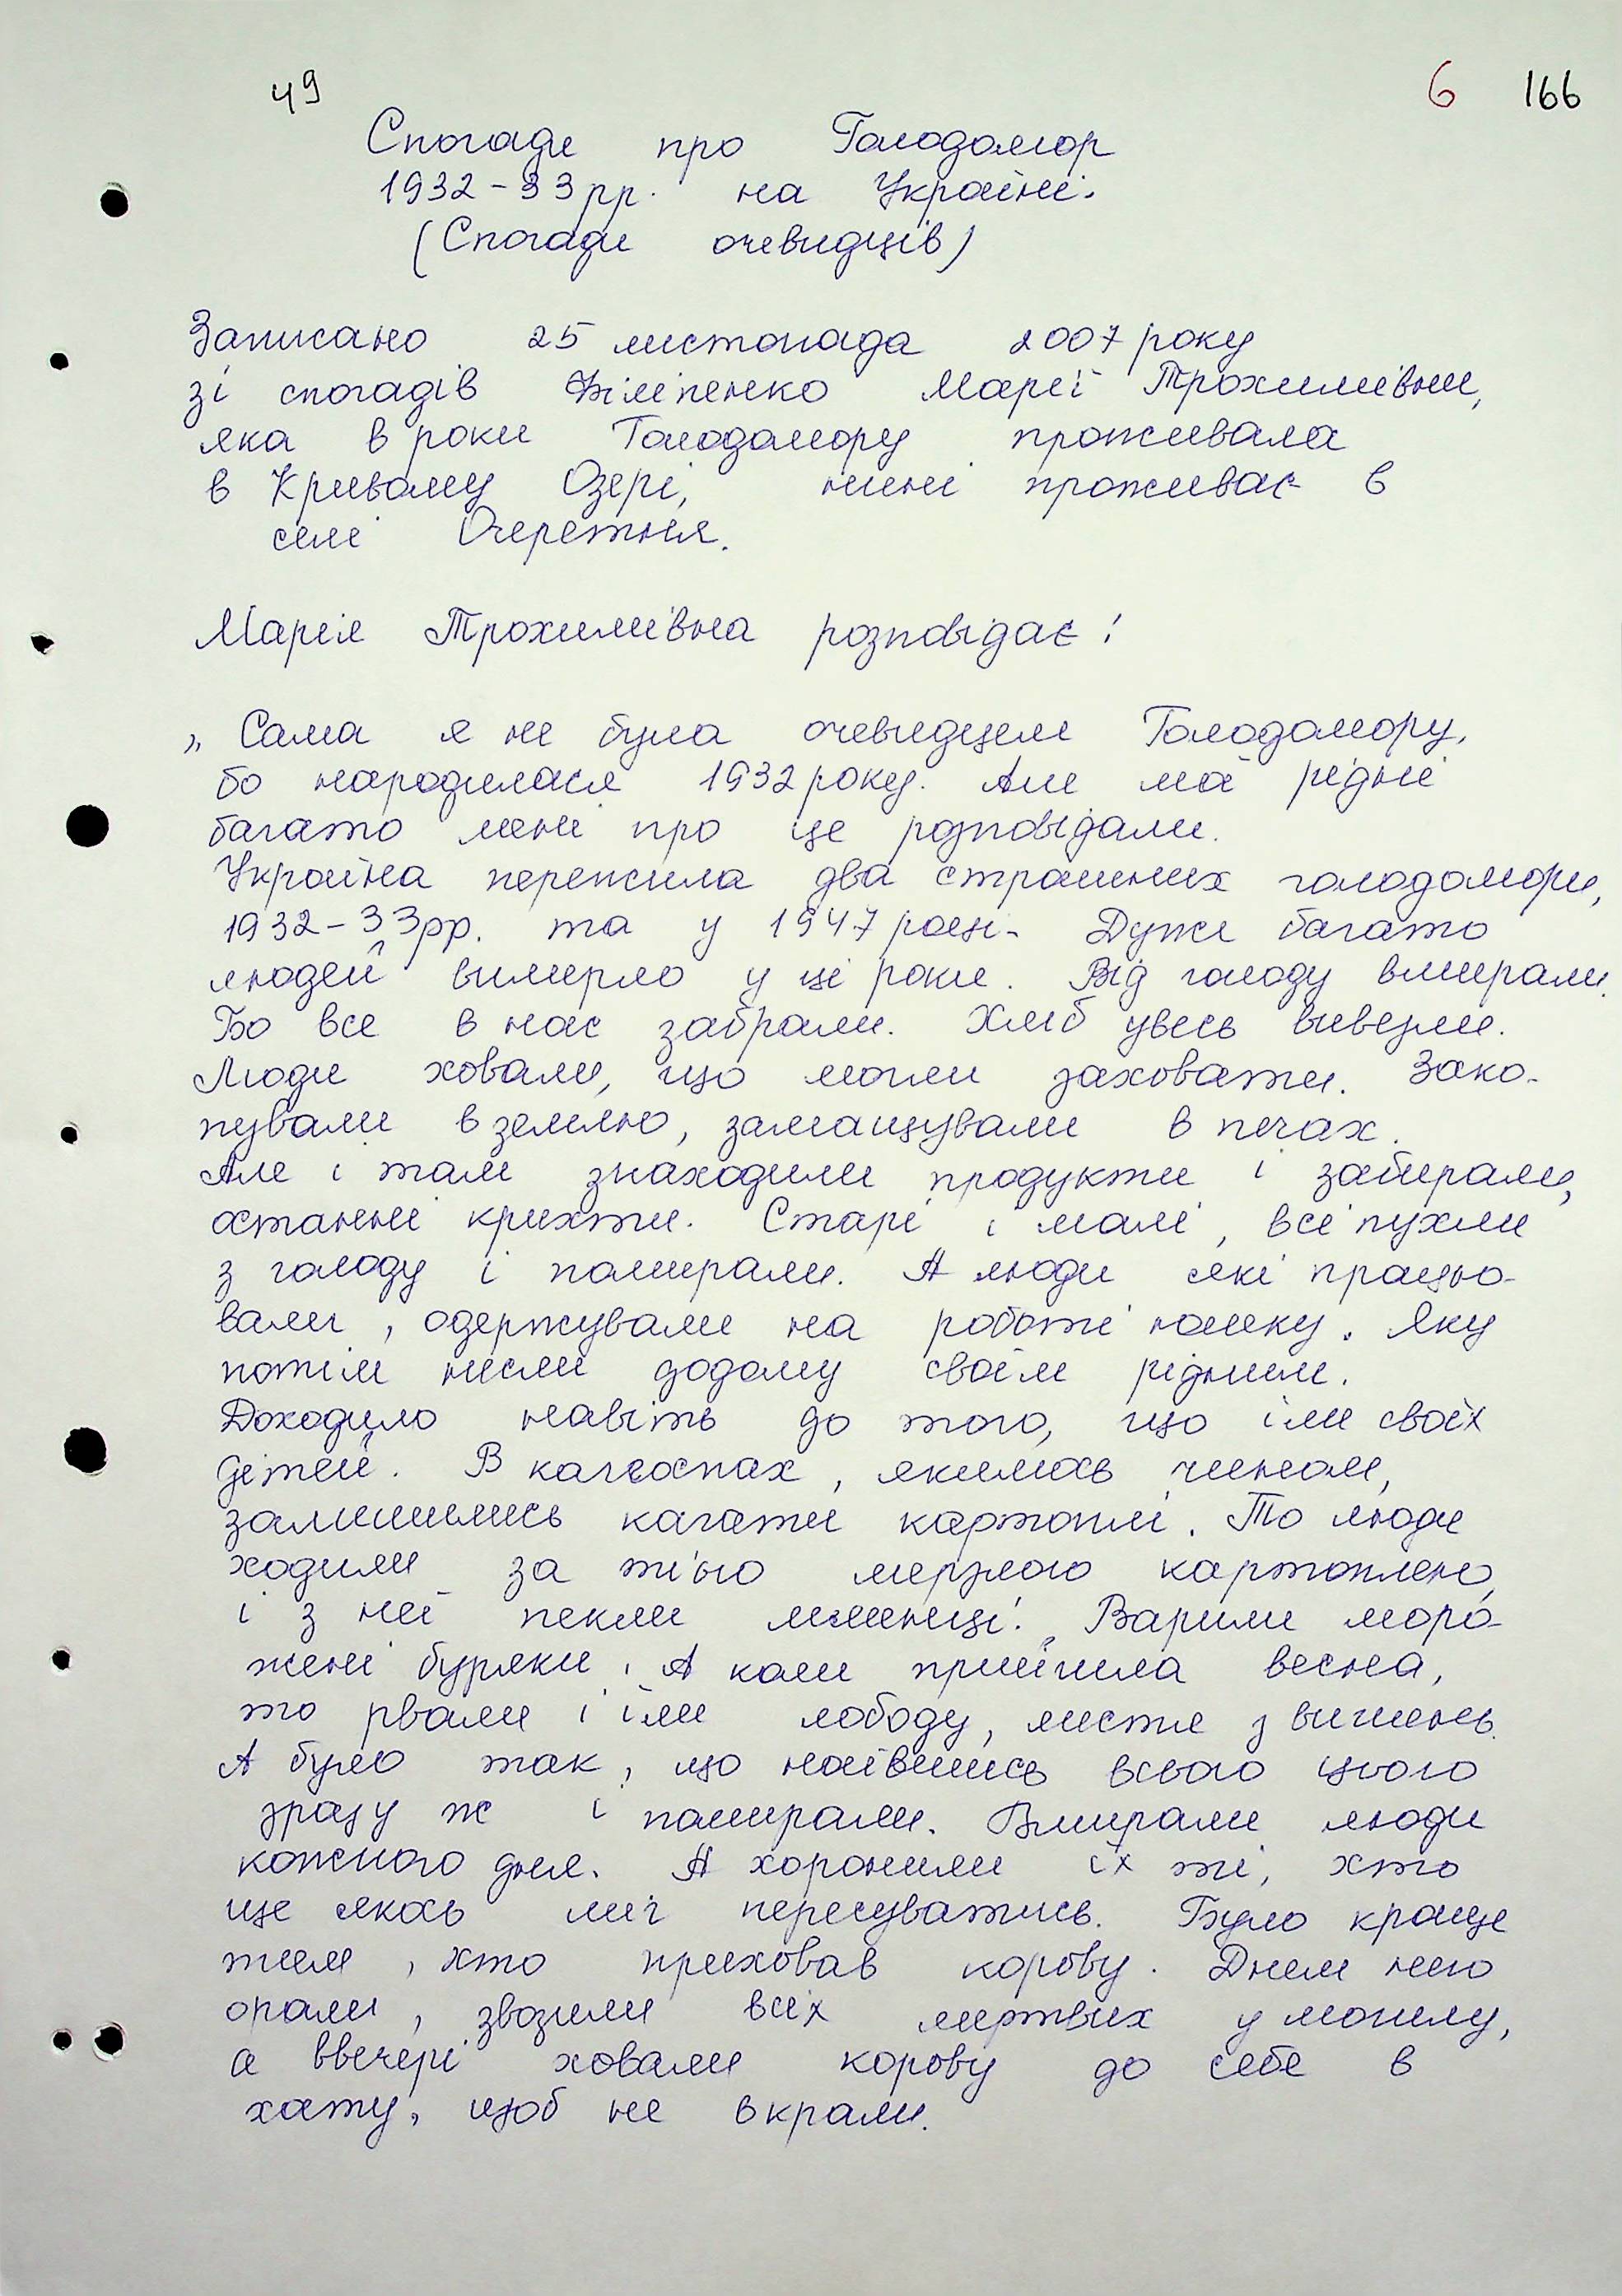 49 6 166
Спогади про Голодомор
1932-33 рр. на Україні.
(Спогади очевидців)
Записано 25 листопада 2007 року
зі спогадів Філіпенко Марії Трохимівни,
яка в роки Голодомору проживала
в Кривому Озері, нині проживає в
селі Очеретня.
Марія Трохимівна розповідає:
„ Сама я не була очевидцем Голодомору,
бо народилася 1932 року. Але мої рідні
багато мені про це розповідали.
Україна пережила два страшних голодомори,
1932-33 рр. та у 1947 році. Дуже багато
людей вимерло у ці роки. Від голоду вмирали.
Бо все в нас забрали. Хліб увесь вивезли.
Люди ховали, що могли заховати. Зако-
пували в землю, замащували в печах.
Але і там знаходили продукти і забирали,
останні крихти. Старі і малі, всі пухли
з голоду і помирали. А люди які працю-
вали, одержували на роботі юшку. Яку
потім несли додому своїм рідним.
Доходило навіть до того, що їли своїх
дітей. В колгоспах, якимось чином,
залишились кагати картоплі. То люди
ходили за тією мерзлою картоплею
і з неї пекли млинці. Варили моро-
жені буряки. А коли прийшла весна,
то рвали і їли лободу, листя з вишень.
А було так, що наївшись всього цього
зразу ж і помирали. Вмирали люди
кожного дня. А хоронили їх ті, хто
ще якось міг пересуватись. Було краще
тим, хто приховав корову. Днем нею
орали, звозили всіх мертвих у могилу,
а ввечері ховали корову до себе в
хату, щоб не вкрали.